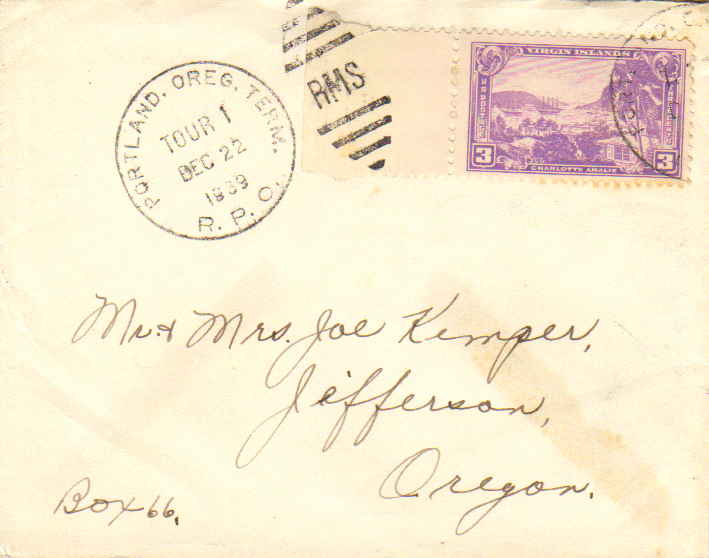 PORTLAND, OREG. TERM.
TOUR 1
DEC 22
1939
R. P. O.
RMS
VIRGIN ISLANDS
3
3
CHARLOTTE AMALIE
Mr. & Mrs. Joe Kemper,
Jefferson,
Oregon.
Box 66.